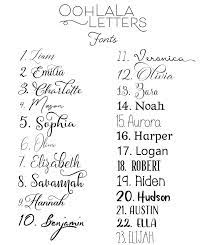 OOHLALA
LETTERS
Fonts
1. Liam
2. Emilia
3. Charlotte
4. Mason
5. Sophia
6. Olive
7. Elizabeth
8. Savannah
9. Hannah
10. Benjamin
11. Veronica
12. Olivia
13. Zara
14. Noah
15. Aurora
16. Harper
17. Logan
18. ROBERT
19. Aiden
20. Hudson
21. AUSTIN
22. ELLA
23. ELIJAH